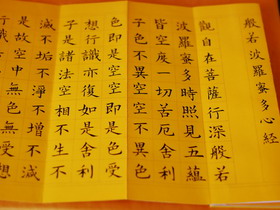 般若波羅蜜多心經
觀自在菩薩行深般若
波羅蜜多時照見五蘊
皆空度一切苦厄舍利
子色不異空空不異色
色即是空空即是色受
想行識亦復如是舍利
子是諸法空相不生不
滅不垢不淨不增不減
是故空中無色無受想
行識